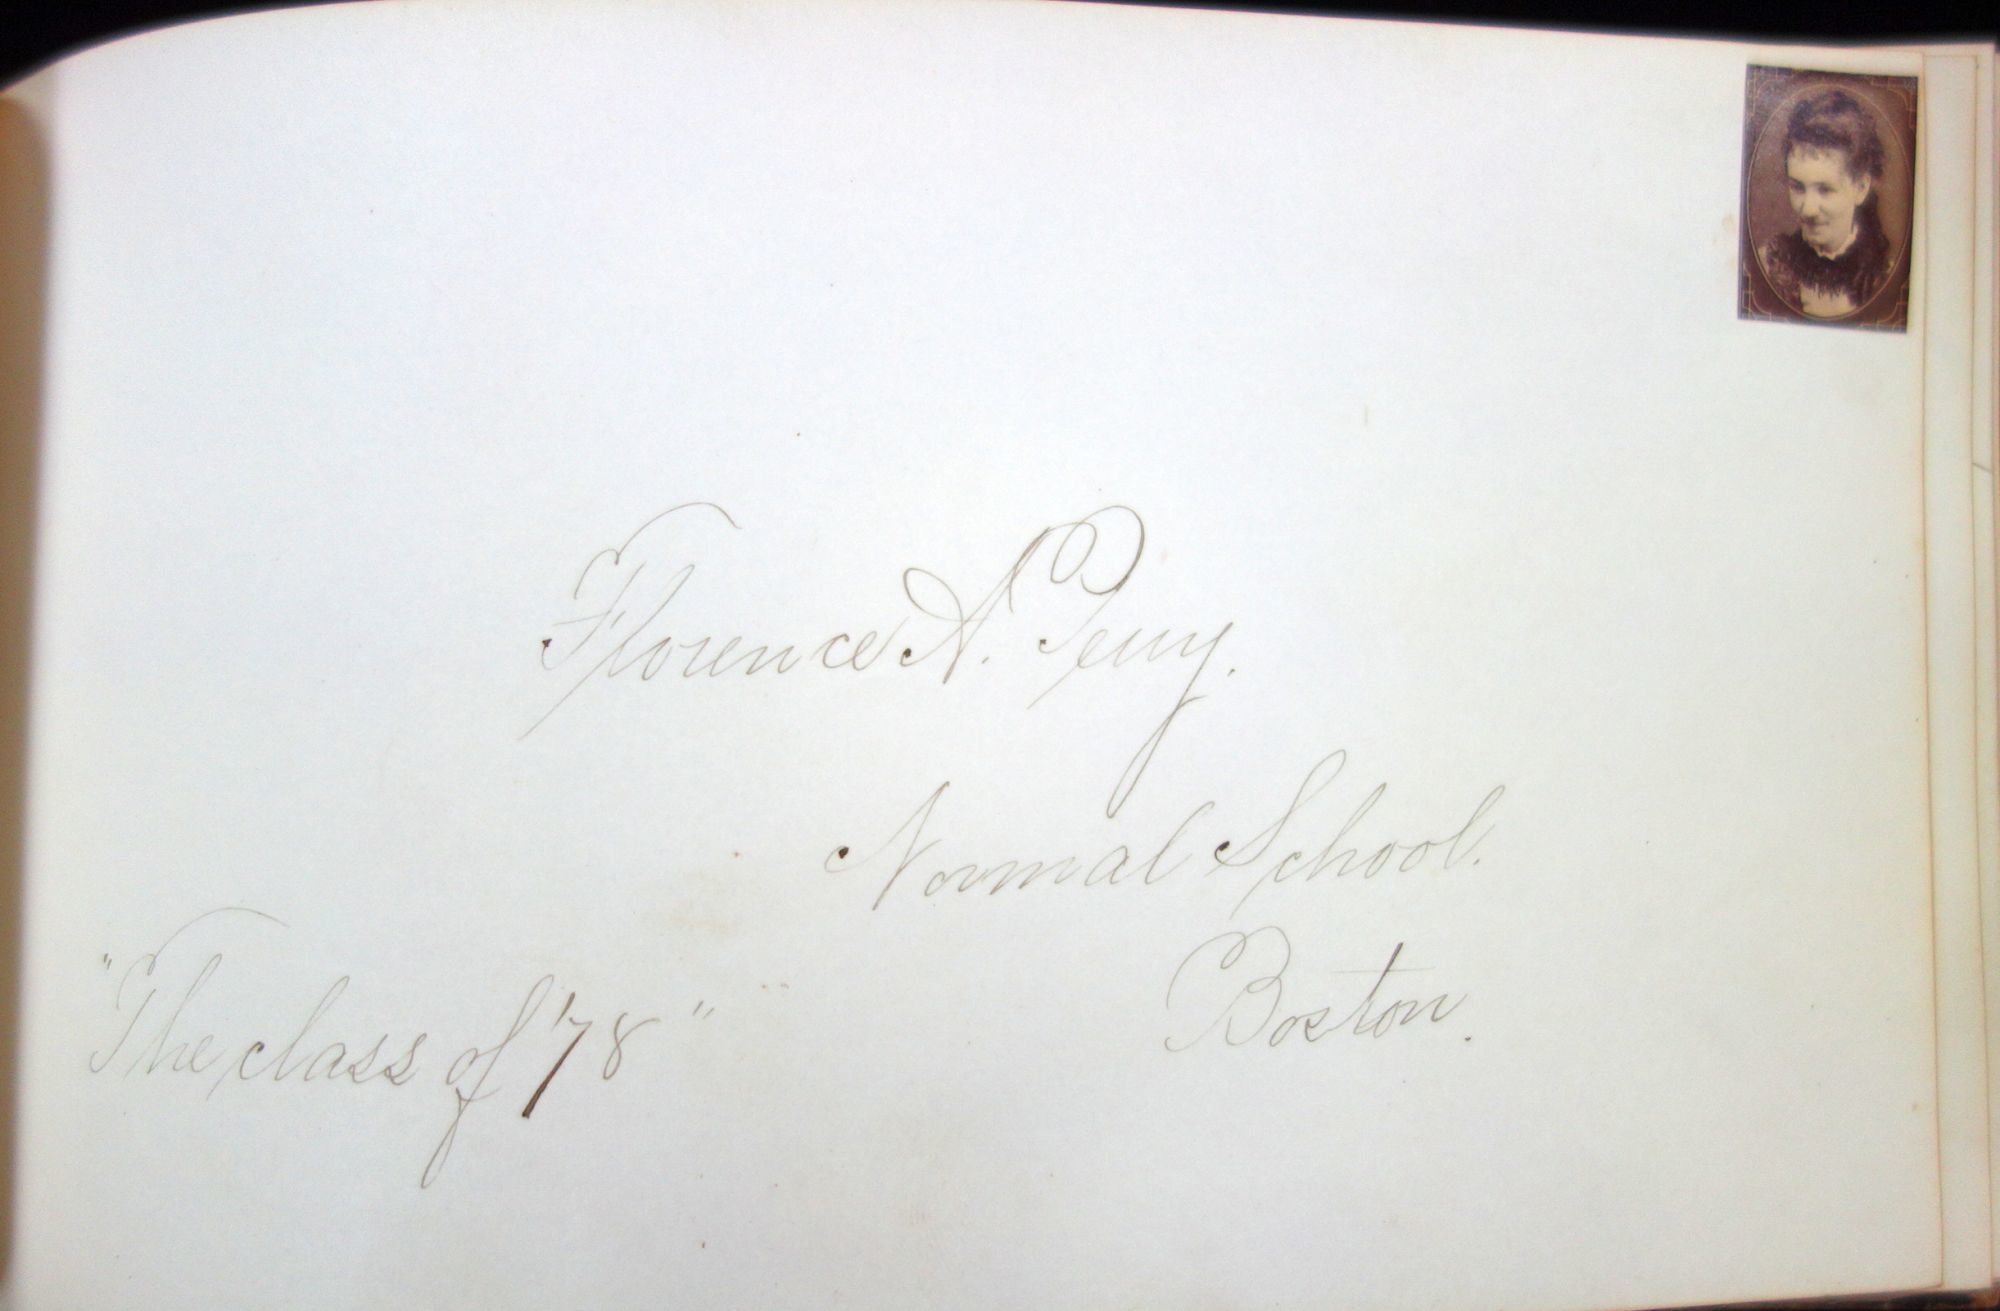 Florence A. Perry.
Normal School.
Boston.
"The class of '78"